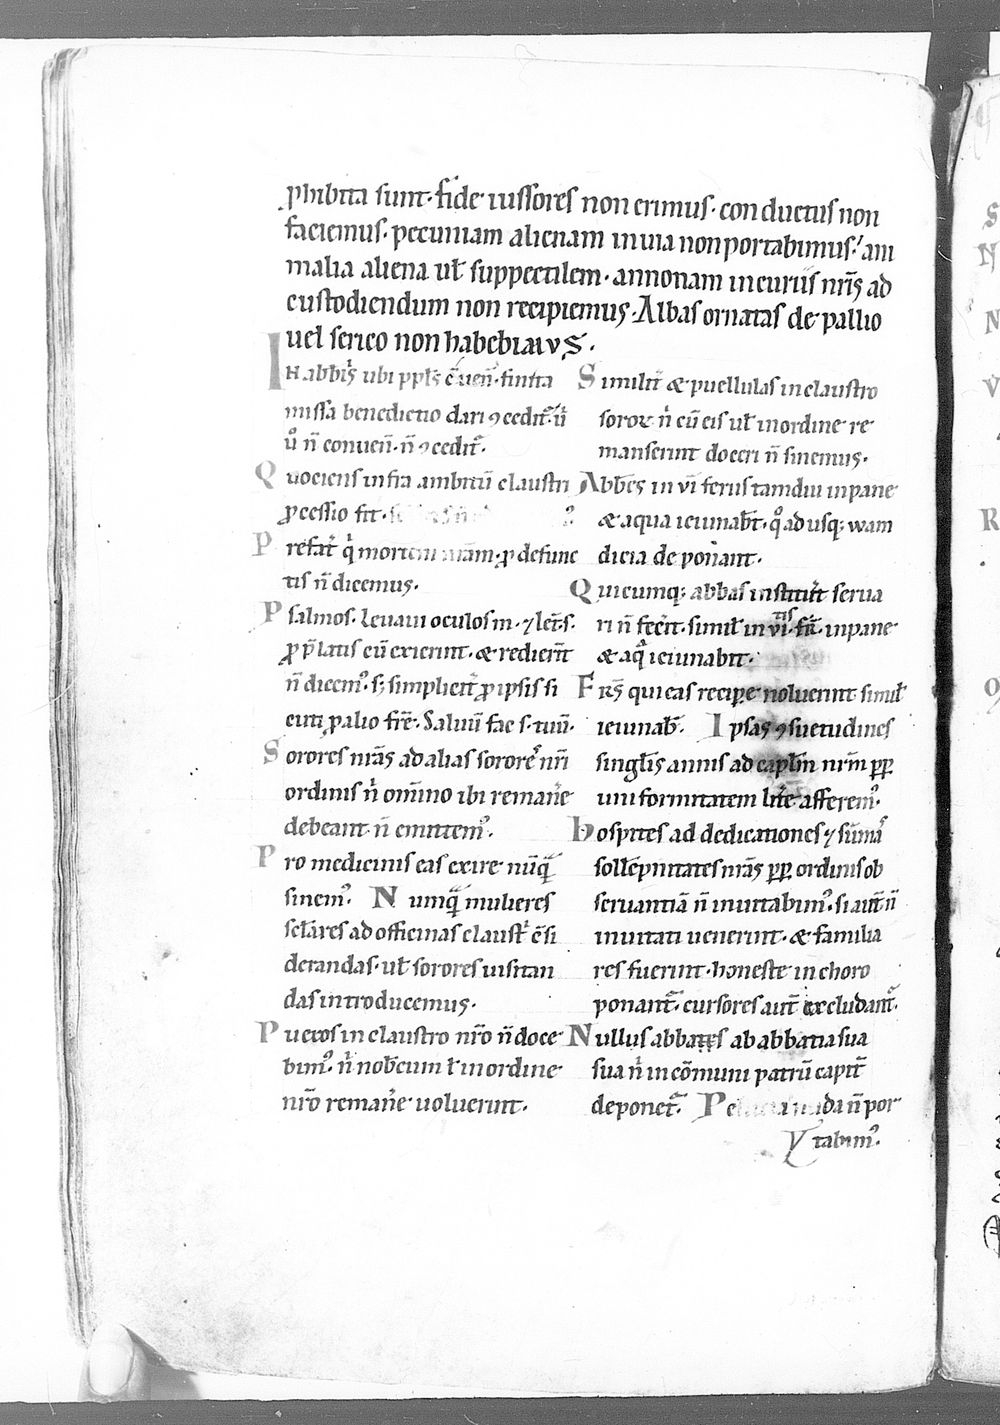 ꝓhibita sunt· fide iussores non erimus· conductus non
faciemus· pecuniam alienam in uia non portabimus· ani
malia aliena ul̄ suppectilem· annonam in curiis nr̄is ad
custodiendum non recipiemus· Albas ornatas de pallio
uel serico non habebimus·
In abb̄iis ubi pp̄ls finita
missa benedictio dari ꝯcedit᷑
n̄ conuen̄· n̄ ꝯcedit᷑·
Quociens infra ambitū claustri
ꝓcessio fit·
Prefat᷑ ꝓ defunc
tis n̄ dicemus·
Psalmos· leuaui oculos m· ⁊ let̄· s·
ꝓ p̄latis cū exierint· & redier̄t
n̄ dicem᷒· s; simplicit᷑ ꝓ ipsis si
cut ꝓ alio fr̄e· Saluū fac s· tuū·
Sorores nr̄as ad alias sorores nr̄i
ordinis n̄ om̄ino ibi reman̄e
debeant n̄ emittem᷒·
Pro medicinis eas exire nūqᷓ
sinem᷒· Numqᷓ mulieres
scl̄ares ad officinas claust᷑ c̄si
derandas· ul̄ sorores uisitan
das introducemus·
Pueros in claustro nr̄o n̄ doce
bim᷒· nob̄cum ł in ordine
nr̄o reman̄e uoluerint·
Similit᷑ & puellulas in claustro
soroꝝ cū eis ul̄ in ordine re
manserint doceri n̄ sinemus·
Abb̄es in vi ferus tamdiu in pane
& aqua ieiunab̄t· qͦ ad usq; wam
dicia deponant·
Quicumq; abbas instituta serua
ri n̄ fec̄it· simil̄ in vitis fr̄i· in pane
& aqͣ ieiunabit·
Fr̄s qui eas recipe noluerint simil̄
ieiunab̄· Ipsas ꝯsuetudines
singl̄is annis ad capl̄m nr̄m ꝓp
uniformitatem afferem᷒·
hospites ad dedicationes ⁊ sūmas
sollēpnitates nr̄as ꝓp ordinis ob
seruantiā n̄ inuitabim᷒· si aut̄ n̄
inuitati uenerint· & familia
res fuerint· honeste in choro
ponant᷑· cursores aut̄ excludant᷑·
Nullus abbatū ab abbatia sua
sua n̄ in cōmuni patrū capit̄
deponet᷑· n̄ por
tabim᷒·
V